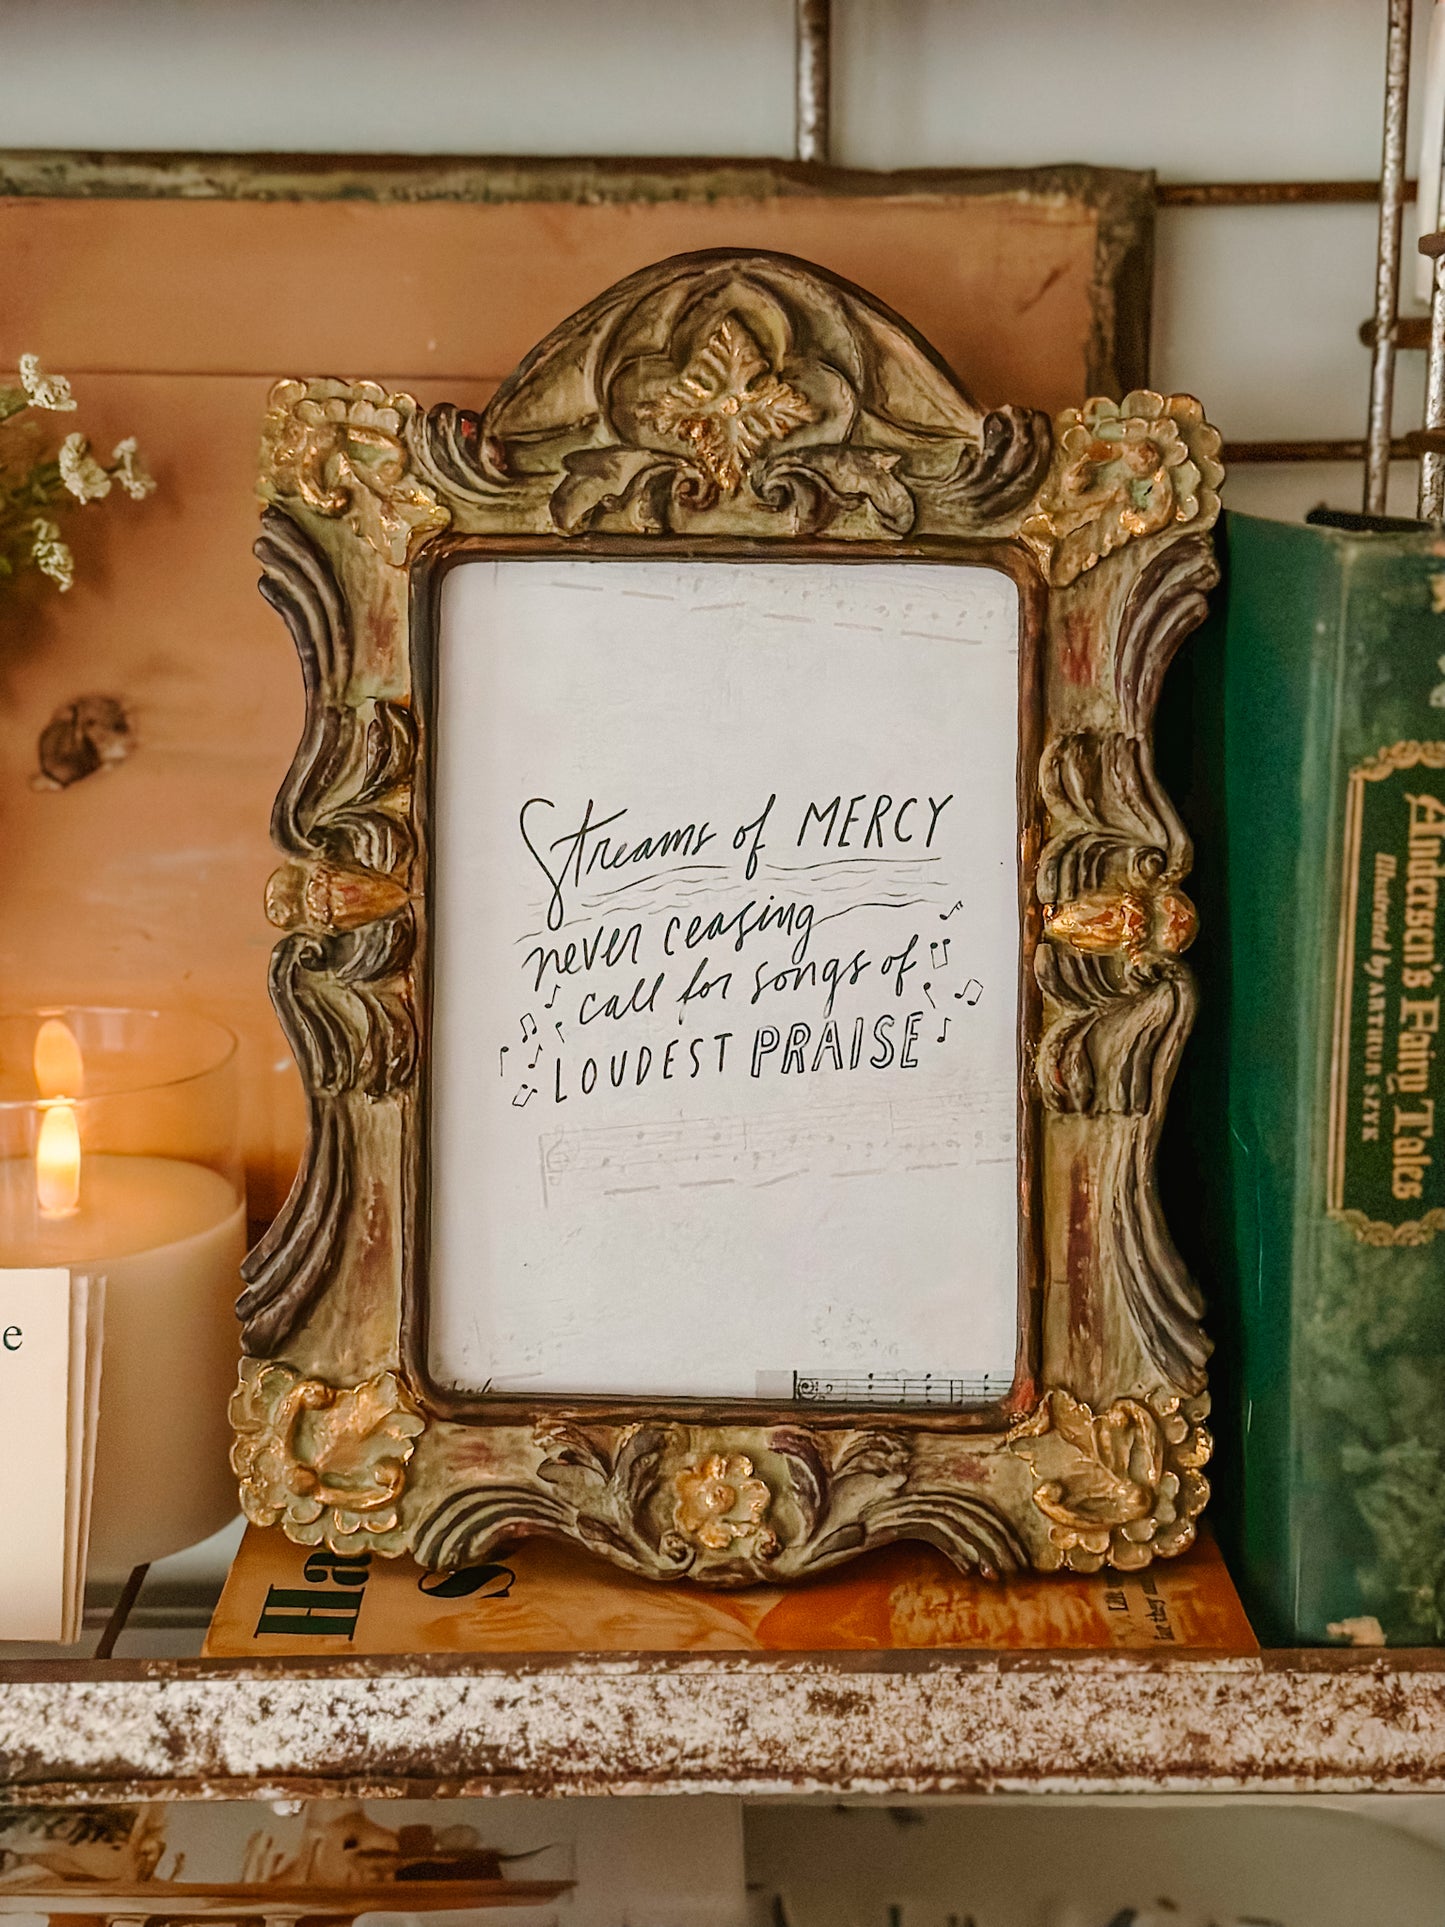 Streams of MERCY
never ceasing
call for songs of
LOUDEST PRAISE
Andersen's Fairy Tales
Illustrated by ARTHUR SZYK
e
Ha
S